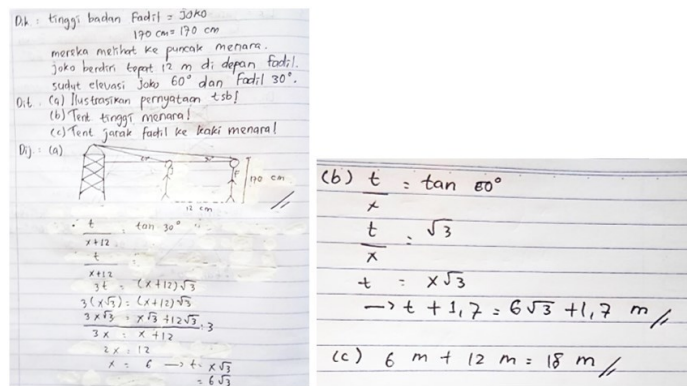 Dik : tinggi badan Fadil = Joko
170 cm = 170 cm
mereka melihat ke puncak menara.
joko berdiri tepat 12 m di depan fadil.
sudut elevasi joko 60° dan Fadil 30°.
Dit : (a) Ilustrasikan pernyataan tsb!
(b) Tent tinggi menara!
(c) Tent jarak fadil ke kaki menara!
Dij : (a)
60° 30°
J F 170 cm
12 cm
t / x+12 = tan 30°
t / x+12 =
3t = (x+12)√3
3(x√3) = (x+12)√3
3x√3 = x√3 + 12√3 : 3
3x = x + 12
2x = 12
x = 6 → t = x√3
= 6√3
(b) t / x = tan 60°
t / x = √3
t = x√3
→ t + 1,7 = 6√3 + 1,7 m
(c) 6 m + 12 m = 18 m